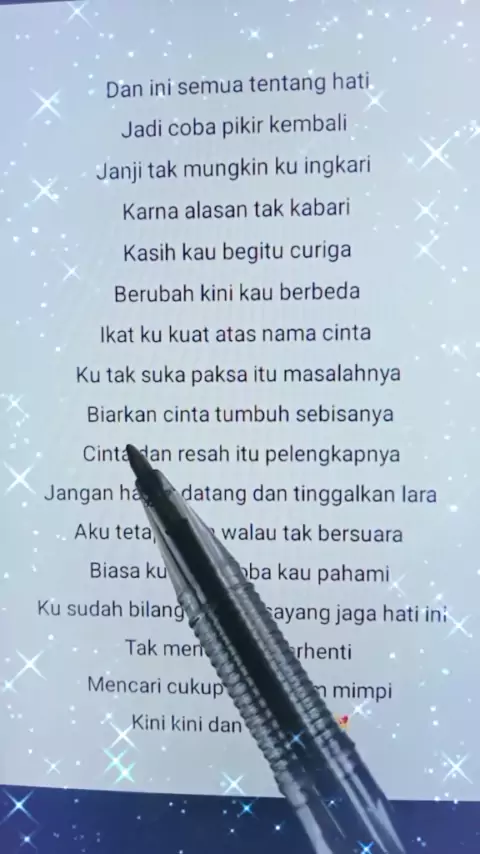 Dan ini semua tentang hati
Jadi coba pikir kembali
Janji tak mungkin ku ingkari
Karna alasan tak kabari
Kasih kau begitu curiga
Berubah kini kau berbeda
Ikat ku kuat atas nama cinta
Ku tak suka paksa itu masalahnya
Biarkan cinta tumbuh sebisanya
Cinta dan resah itu pelengkapnya
Jangan datang dan tinggalkan lara
Aku walau tak bersuara
Biasa kau pahami
Ku sudah bilang sayang jaga hati ini
Tak
Mencari cukup mimpi
Kini kini dan